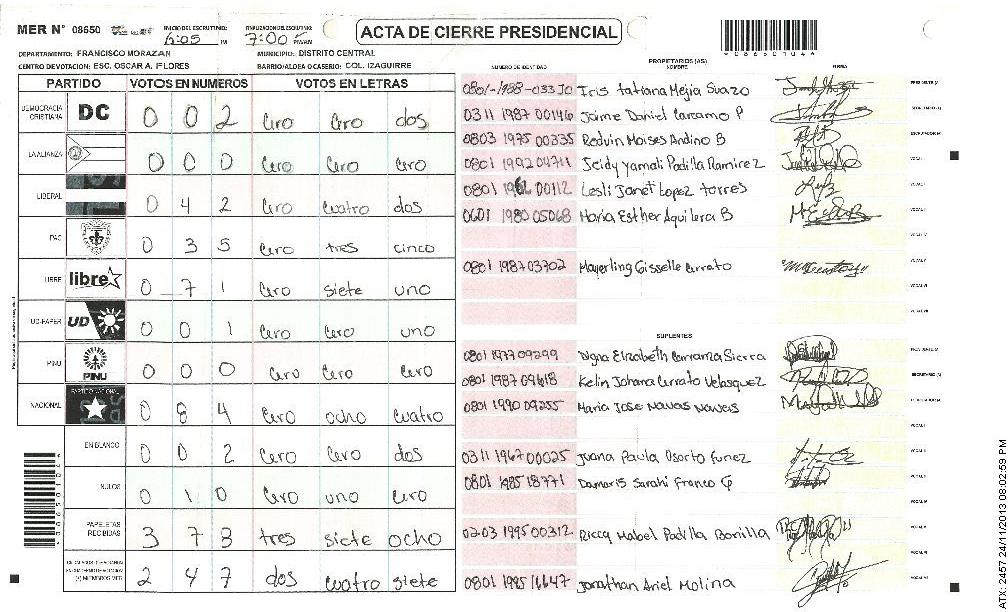 MER N° 08650
INICIO DEL ESCRUTINIO:
6:05 PM
7:00 PM/AM
ACTA DE CIERRE PRESIDENCIAL
DEPARTAMENTO: FRANCISCO MORAZAN
MUNICIPIO: DISTRITO CENTRAL
CENTRO DE VOTACION: ESC. OSCAR A. FLORES
BARRIO/ALDEA O CASERIO: COL. IZAGUIRRE
PARTIDO VOTOS EN NUMEROS VOTOS EN LETRAS
DEMOCRACIA CRISTIANA DC 0 0 2 Cero Cero dos
LA ALIANZA 0 0 0 Cero Cero Cero
LIBERAL 0 4 2 Cero Cuatro dos
PAC 0 3 5 Cero tres cinco
LIBRE libre 0 7 1 Cero siete uno
UD-FAPER UD 0 0 1 Cero Cero uno
PINU PINU 0 0 0 Cero Cero Cero
NACIONAL PARTIDO NACIONAL 0 8 4 Cero ocho cuatro
EN BLANCO 0 0 2 Cero Cero dos
NULOS 0 1 0 Cero uno Cero
PAPELETAS RECIBIDAS 3 7 8 tres siete ocho
(+) MIEMBROS MER 2 4 7 dos cuatro siete
NUMERO DE IDENTIDAD
PROPIETARIOS (AS)
NOMBRE
FIRMA
0801-1988-03330 Iris Tatiana Mejia Suazo
0311 1987 00146 Jaime Daniel Carcamo P
0803 1975 00335 Redvin Moises Andino B
0801 199204711 Jeidy Yamali Padilla Ramirez
0801 00112 Lesli Janet Lopez torres
0601 1980 05068 Maria Esther Aguilera B
0801 198703702 Mayerling Gisselle Cerrato
SUPLENTES
0801 1977 09299 Digna Elizabeth Carranza Sierra
0801 1987 09618 Kelin Johana Cerrato Velasquez
0801 1990 09255 Maria Jose Navas Navas
0311 1967 00025 Juana Paula Osorto funez
0801 1985 18771 Damaris Sarahi Franco G
0203 1995 00312 Riccy Mabel Padilla Bonilla
0801 1985 16647 Jonathan Ariel Molina
086501044
ATX: 2457 24/11/2013 08:02:59 PM